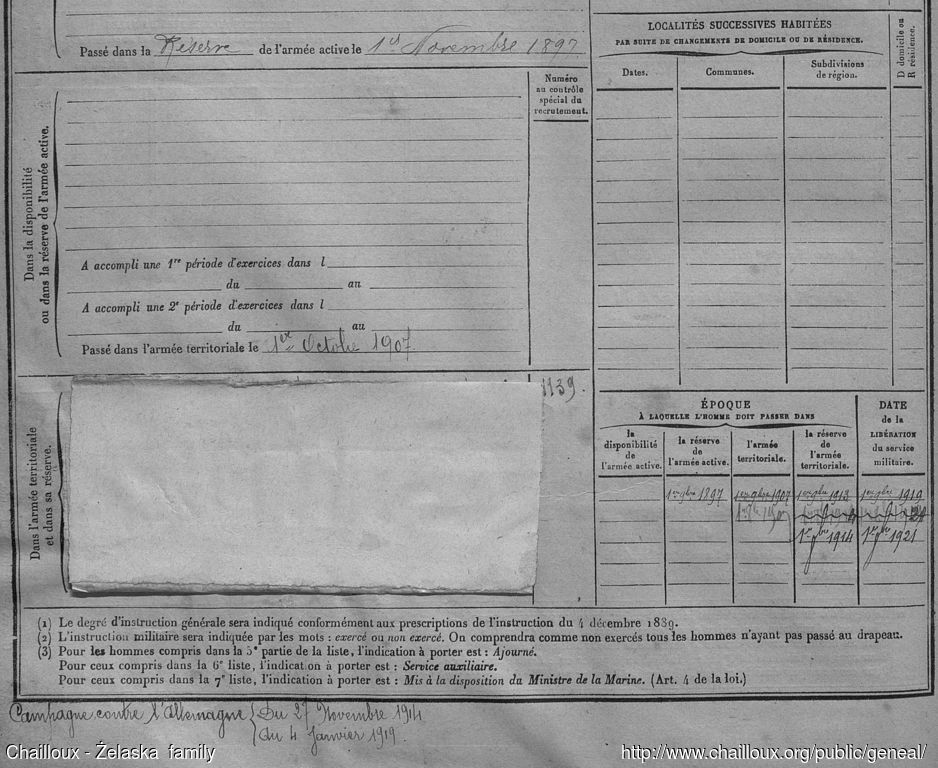 Passé dans la Réserve de l'armée active le 1er Novembre 1897
Numéro
au contrôle
spécial du
recrutement.
Dans la disponibilité
ou dans la réserve de l'armée active.
A accompli une 1re période d'exercices dans l
du au
A accompli une 2e période d'exercices dans l
du au
Passé dans l'armée territoriale le 1er Octobre 1907
1139.
Dans l'armée territoriale
et dans sa réserve.
LOCALITÉS SUCCESSIVES HABITÉES
PAR SUITE DE CHANGEMENTS DE DOMICILE OU DE RÉSIDENCE.
D domicile ou
R résidence.
Dates.
Communes.
Subdivisions
de région.
ÉPOQUE
À LAQUELLE L'HOMME DOIT PASSER DANS
DATE
de la
LIBÉRATION
du service
militaire.
la
disponibilité
de
l'armée active.
la réserve
de
l'armée active.
l'armée
territoriale.
la réserve
de
l'armée
territoriale.
1er 9bre 1897 1er 9bre 1907 1er 9bre 1913 1er 9bre 1919
1er 9bre 1914 1er 9bre 1921
(1) Le degré d'instruction générale sera indiqué conformément aux prescriptions de l'instruction du 4 décembre 1889.
(2) L'instruction militaire sera indiquée par les mots : exercé ou non exercé. On comprendra comme non exercés tous les hommes n'ayant pas passé au drapeau.
(3) Pour les hommes compris dans la 5e partie de la liste, l'indication à porter est : Ajourné.
Pour ceux compris dans la 6e liste, l'indication à porter est : Service auxiliaire.
Pour ceux compris dans la 7e liste, l'indication à porter est : Mis à la disposition du Ministre de la Marine. (Art. 4 de la loi.)
Campagne contre l'Allemagne { Du 27 Novembre 1914
du 4 Janvier 1919.
Chailloux - Żelaska family
http://www.chailloux.org/public/geneal/